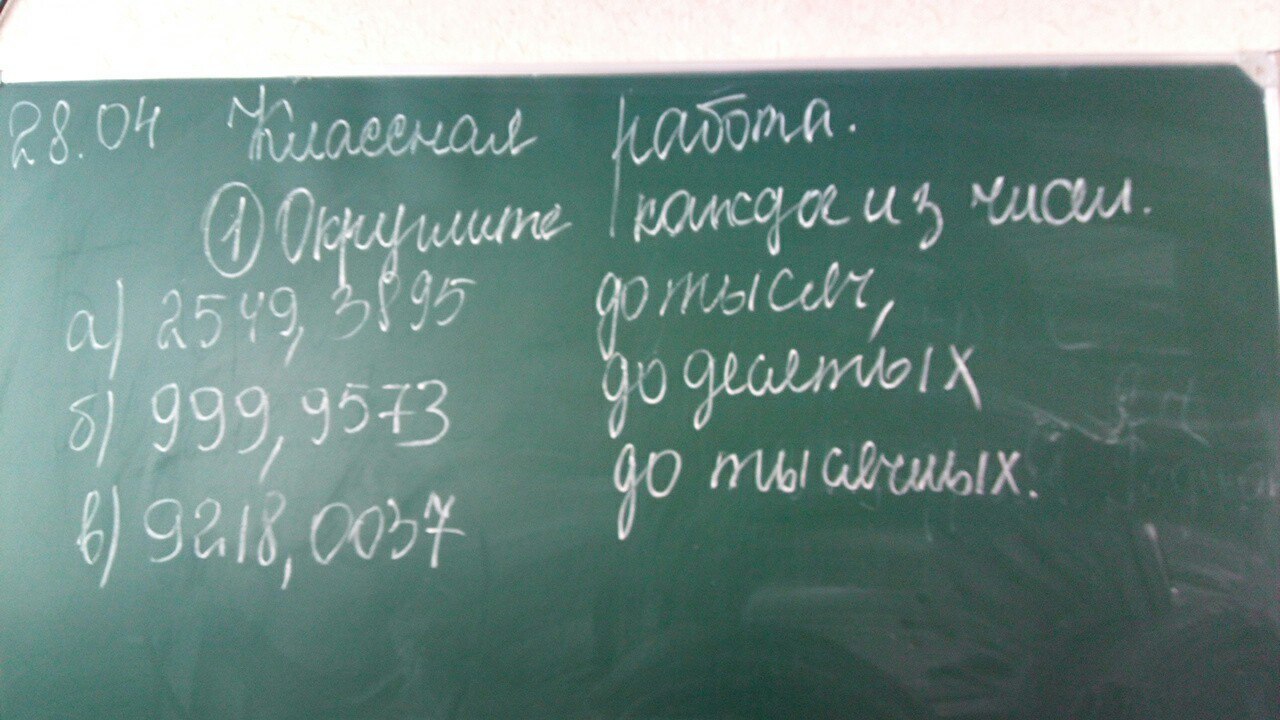 28.04 Классная работа.
① Округлите каждое из чисел.
а) 2549,3895 до тысяч,
б) 999,9573 до десятых
в) 9218,0037 до тысячных.